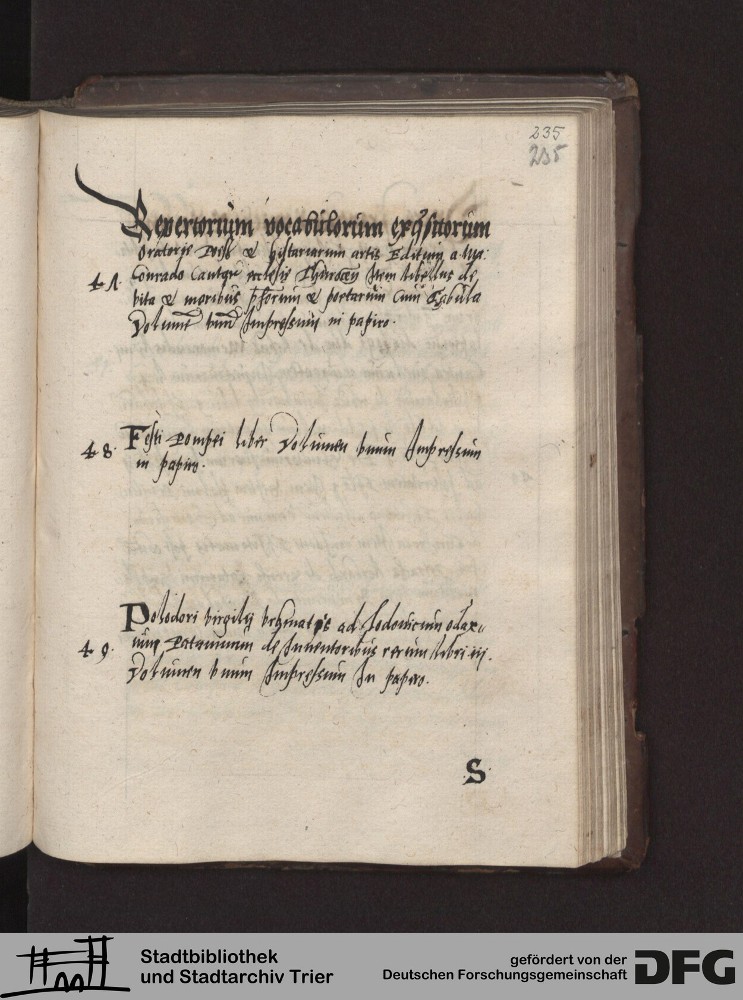 235
235
Repertorium vocabulorum exqsitorum
Oratorie Poesis & historiarum artis Editum a Mgr
47. Conrado Cantore ecclesie Item libellus de
vita & moribus phorum & poetarum cum Tabula
Volumen vnum Impressum in papiro.
48. Festi Pompei liber Volumen vnum Impressum
in papiro.
Polidori virgilij vrbinatis ad lodouicum odaxi
49. um Patauinum de Inuentoribus rerum libri iij.
Volumen vnum Impressum In papiro.
S
Stadtbibliothek
und Stadtarchiv Trier
gefördert von der
Deutschen Forschungsgemeinschaft
DFG